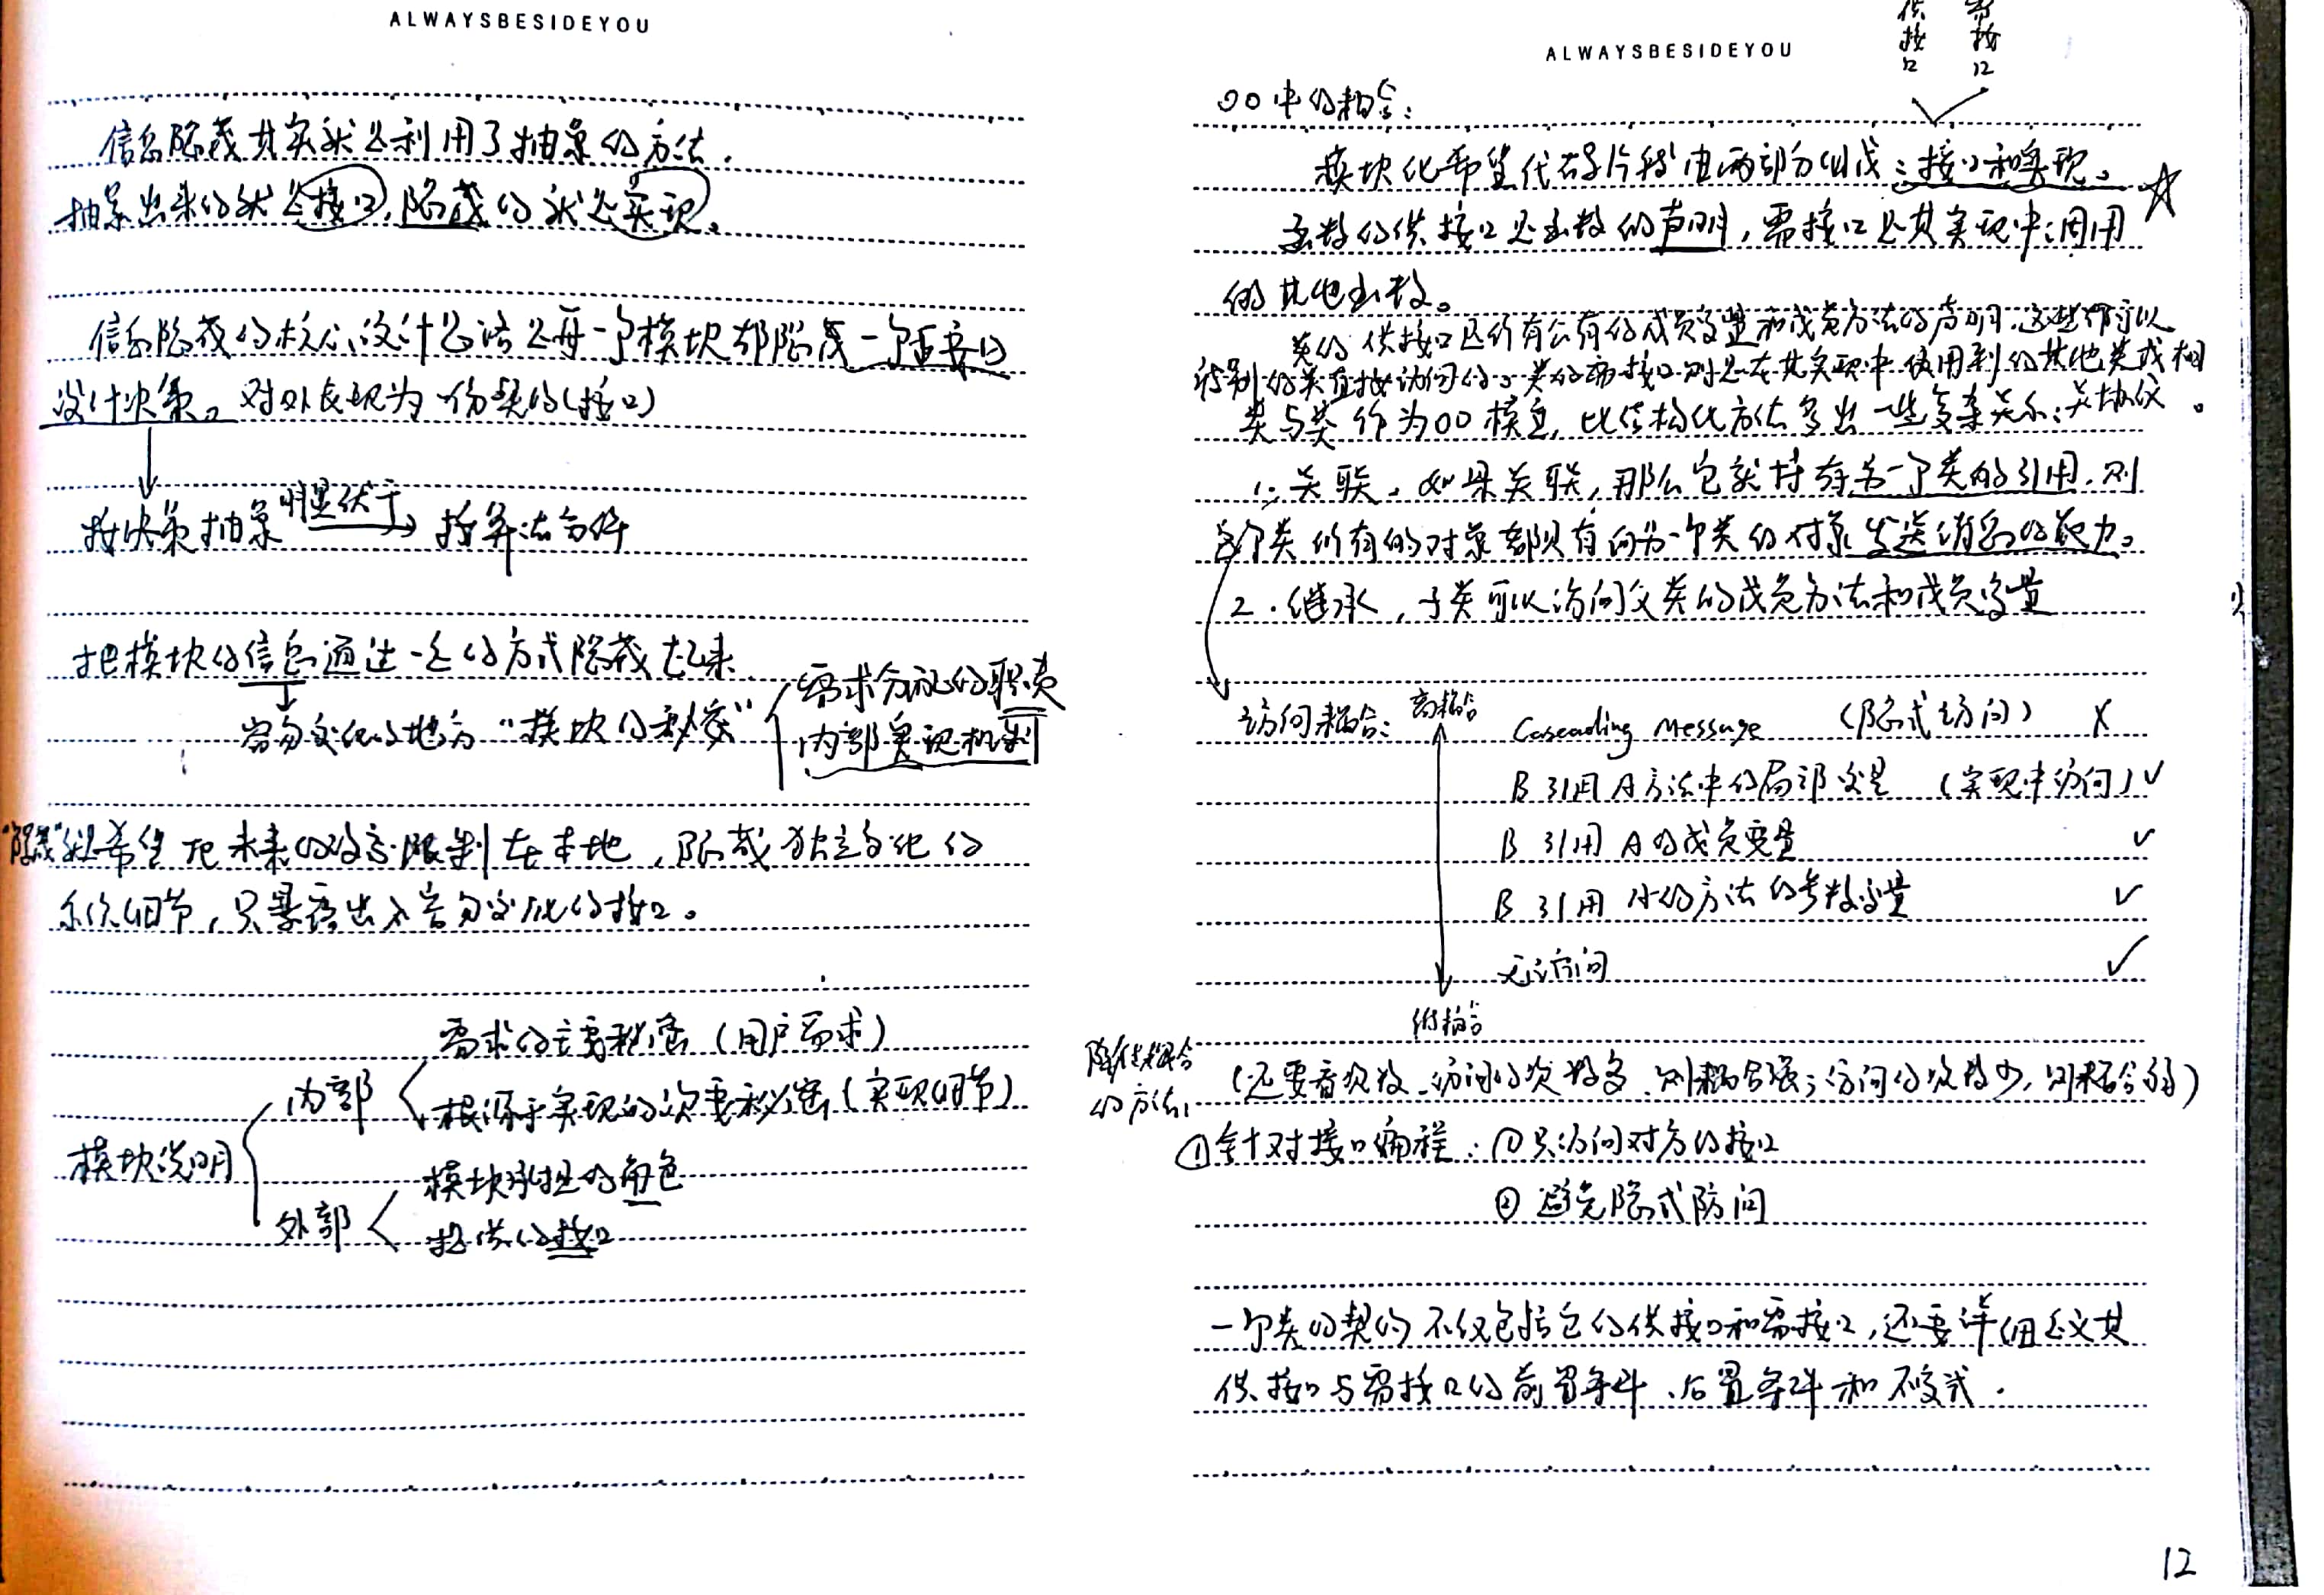 ALWAYSBESIDEYOU
信息隐藏其实就是利用了抽象的方法.
抽象出来的就是接口,隐藏的就是实现。
信息隐藏的核心设计思路是每一个模块都隐藏一个重要的
设计决策。对外表现为一份契约(接口)
按决策抽象 明显优于 按算法分解
把模块的信息通过一定的方式隐藏起来.
容易变化的地方 "模块的秘密"
需求分配的职责
内部实现机制
"隐藏"就是希望把未来的改变限制在本地,隐藏独立变化的
系统细节,只暴露出不容易变化的接口。
模块说明
内部
需求的主要秘密(用户需求)
根源于实现的次要秘密(实现细节)
外部
模块承担的角色
提供的接口
ALWAYSBESIDEYOU
供接口
需接口
OO中的耦合:
模块化希望代码片段由两部分组成:接口和实现。
函数的供接口是函数的声明,需接口是其实现中调用
的其他函数。
类的供接口是所有公有的成员变量和成员方法的声明,这些都可以
被别的类直接访问的。类的需接口则是在其实现中使用到的其他类或相
关协议。
类与类作为OO模型,比结构化方法多出一些复杂关系:
1. 关联。如果关联,那么它就持有另一个类的引用.则
这个类所有的对象都具有向另一个类的对象发送消息的能力。
2. 继承,子类可以访问父类的成员方法和成员变量
访问耦合:
高耦合
Cascading Message (隐式访问) X
B引用A方法中的局部变量 (实现中访问) ✓
B引用A的成员变量 ✓
B引用A的方法的参数变量 ✓
无访问 ✓
低耦合
(还要看次数.访问的次数多.则耦合强;访问的次数少,则耦合弱)
降低耦合
的方法:
①针对接口编程: ①只访问对方的接口
② 避免隐式防问
一个类的契约不仅包括它的供接口和需接口,还要详细定义其
供接口与需接口的前置条件、后置条件和不变式.
12